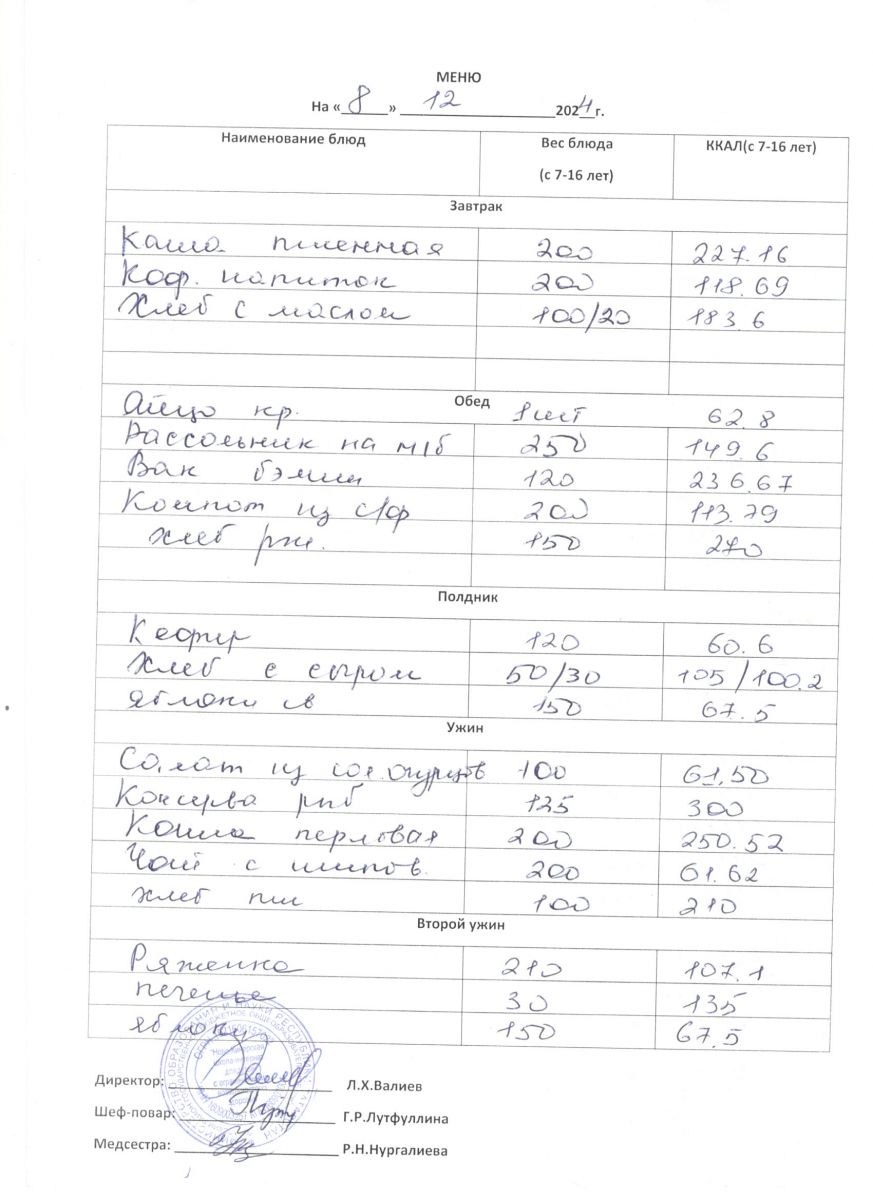 МЕНЮ
На « 8 » 12 2024 г.
Наименование блюд Вес блюда (с 7-16 лет) ККАЛ(с 7-16 лет)
Завтрак
Каша пшенная 200 227.16
Коф. напиток 200 118.69
Хлеб с маслом 100/20 183.6
Обед
Яйцо кр. 1шт 62.8
Рассольник на м/б 250 149.6
Вак бэлиш 120 236.67
Компот из с/ф 200 113.79
Хлеб рж. 150 270
Полдник
Кефир 120 60.6
Хлеб с сыром 50/30 105/100.2
Яблоки 150 67.5
Ужин
Салат из сол.огурцов 100 61,50
Консерва рыб 125 300
Каша перловая 200 250.52
Чай с шипов. 200 61.62
Хлеб пш 100 210
Второй ужин
Ряженка 210 107.1
печенье 30 135
яблоки 150 67.5
Директор: Л.Х.Валиев
Шеф-повар: Г.Р.Лутфуллина
Медсестра: Р.Н.Нургалиева